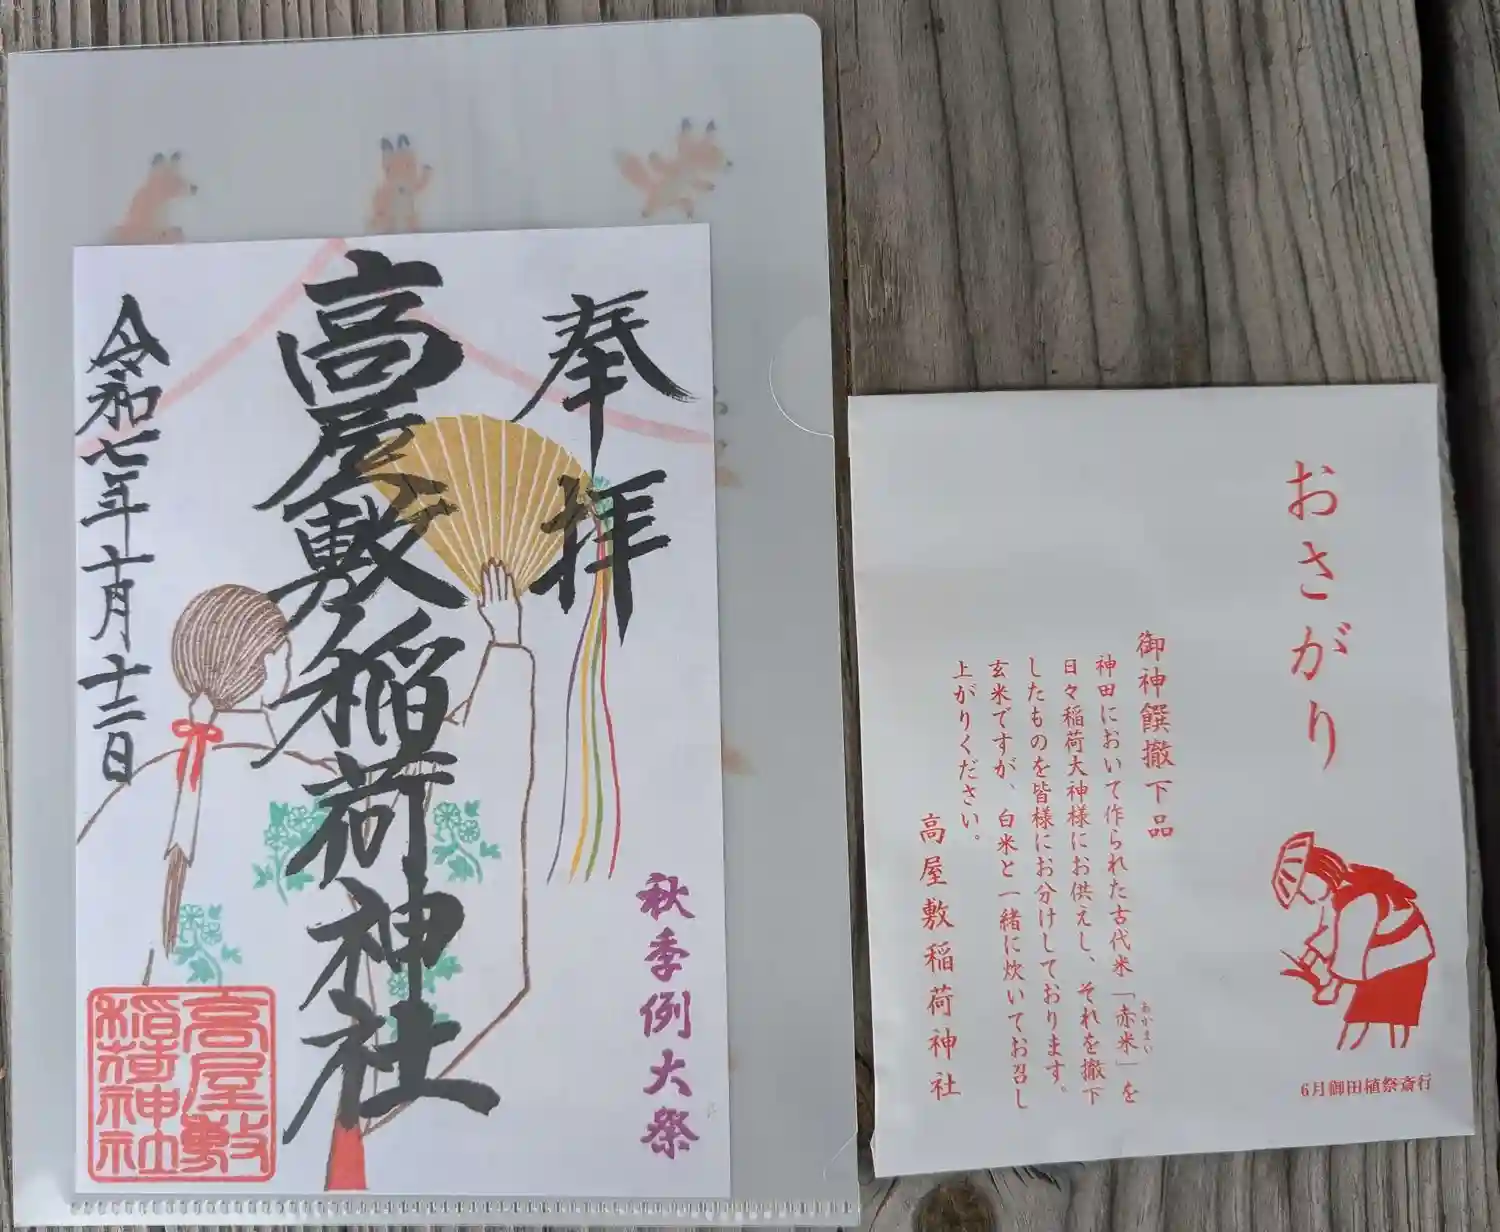 奉拝
高屋敷稲荷神社
令和七年十月十二日
秋季例大祭
高屋敷
稲荷神社
おさがり
御神饌撤下品
神田において作られた古代米「赤米」を
あかまい
日々稲荷大神様にお供えし、それを撤下
したものを皆様にお分けしております。
玄米ですが、白米と一緒に炊いてお召し
上がりください。
高屋敷稲荷神社
6月御田植祭斎行